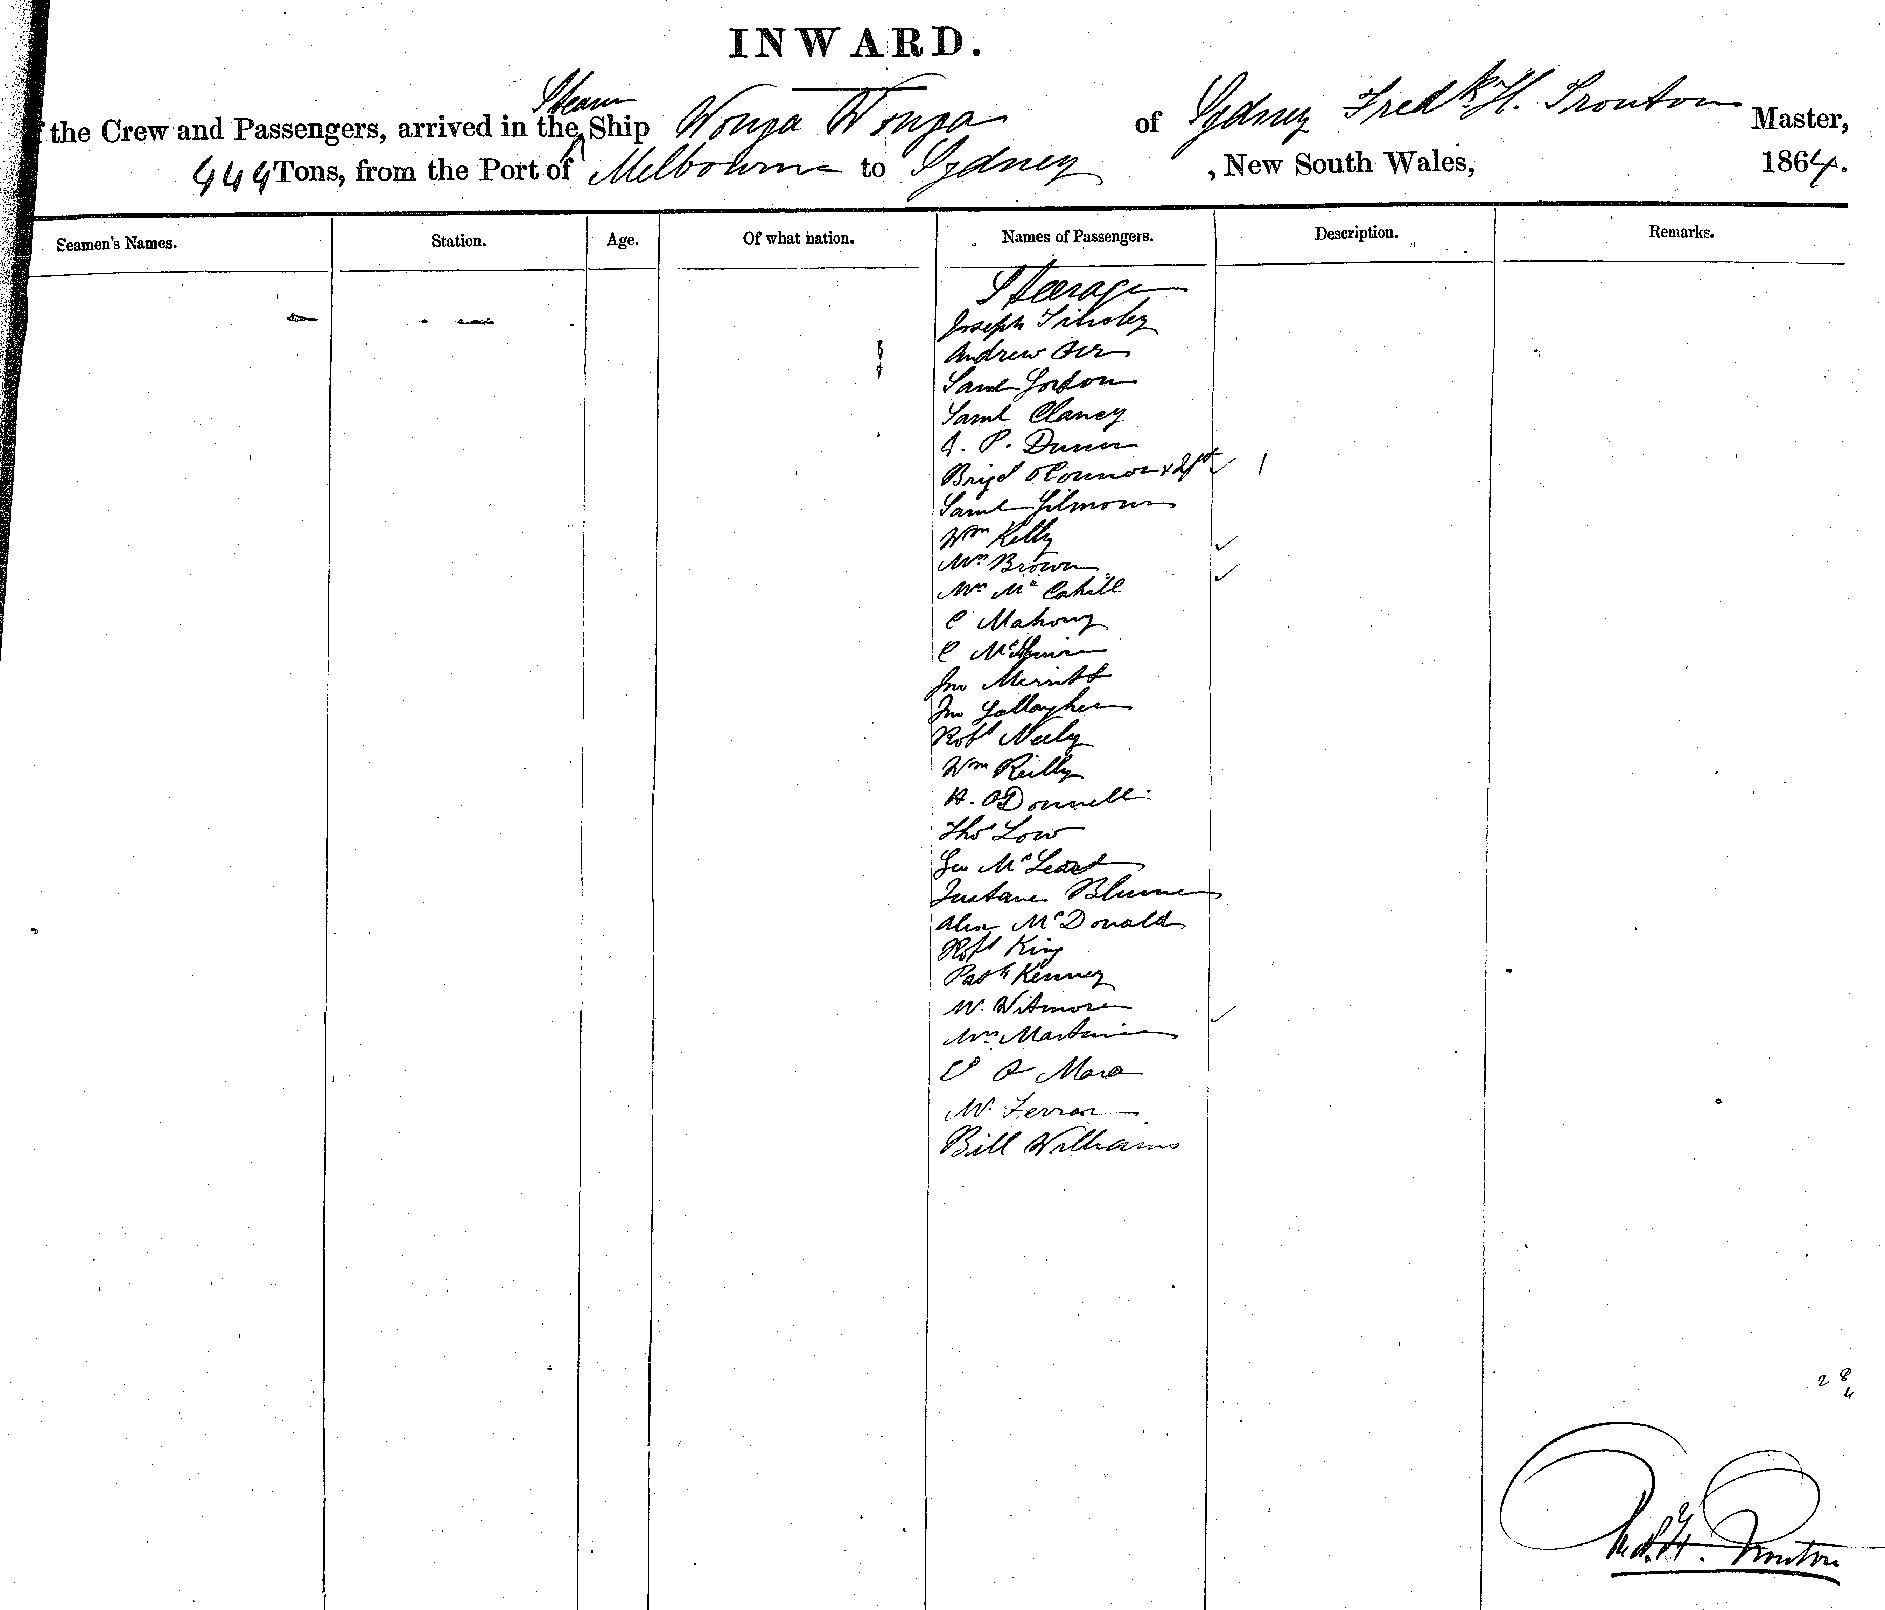 INWARD.
Steam
the Crew and Passengers, arrived in the Ship Wonga Wonga of Sydney Fredk H. Trouton Master,
Tons, from the Port of Melbourne to Sydney, New South Wales, 1864.
Seamen's Names. Station. Age. Of what nation. Names of Passengers. Description. Remarks.
Steerage
Joseph
Andrew Orr
Saml Gordon
Saml Clancy
P. Dunn
Brigd O'Connor
Saml Gilmour
Wm Kelly
Brown
Mc Cahill
C Mahony
C
Jno Merritt
Jno Gallagher
Robt Neely
Wm Reilly
H. O'Donnell
Thos Low
Geo McLeod
Gustave Blume
Alex McDonald
Robt King
Patk Kenney
W. Witmore
Martin
O Mara
Bill Williams
Fredk H. Trouton